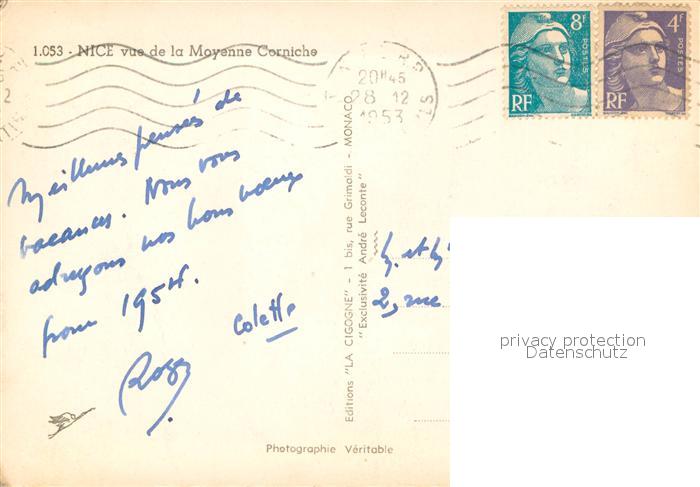 1.053 - NICE vue de la Moyenne Corniche
20H45
28 12
1953
8F
POSTES
RF
4F
POSTES
RF
Meilleures pensées de
vacances. Nous vous
adressons nos bons vœux
pour 1954.
Colette
Roger
Editions "LA CIGOGNE" - 1 bis, rue Grimaldi - MONACO
"Exclusivité André Leconte"
et
2, rue
privacy protection
Datenschutz
Photographie Véritable